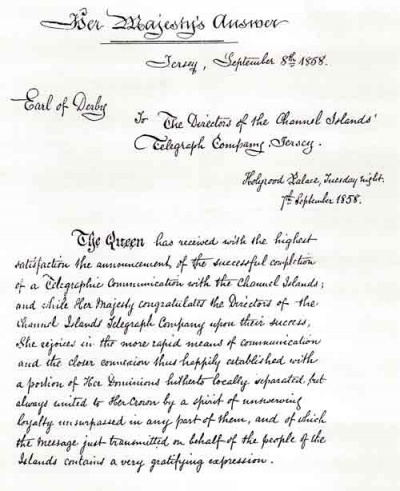 Her Majesty's Answer
Jersey, September 8th 1858.
Earl of Derby
To The Directors of the Channel Islands'
Telegraph Company, Jersey.
Holyrood Palace, Tuesday night.
7th September 1858.
The Queen has received with the highest
satisfaction the announcement of the successful completion
of a Telegraphic Communication with the Channel Islands;
and while Her Majesty congratulates the Directors of the
Channel Islands Telegraph Company upon their success,
She rejoices in the more rapid means of communication
and the closer connexion thus happily established with
a portion of Her Dominions hitherto locally separated, but
always united to Her Crown by a spirit of unswerving
loyalty unsurpassed in any part of them, and of which
the Message just transmitted on behalf of the people of the
Islands contains a very gratifying expression.